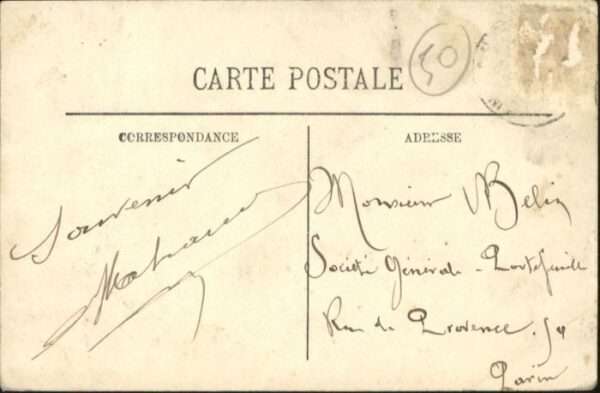 50
CARTE POSTALE
CORRESPONDANCE
ADRESSE
Souvenir
Monsieur Belin
Société Générale - Portefeuille
Rue de Provence. 54
Paris